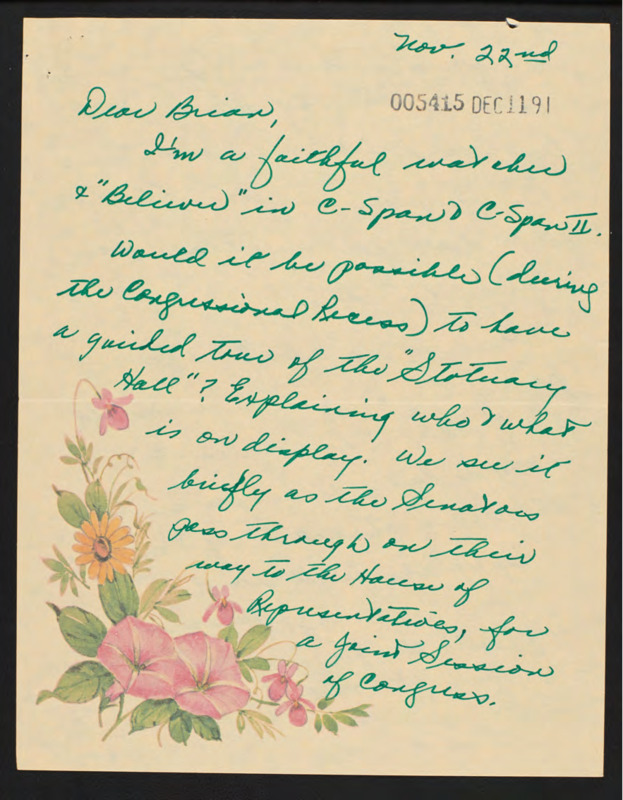 Nov. 22nd
005415 DEC1191
Dear Brian,
I'm a faithful watcher
& "Believer" in C-Span & C-Span II.
Would it be possible (during
the Congressional Recess) to have
a guided tour of the "Statuary
Hall"? Explaining who & what
is on display. We see it
briefly as the Senators
pass through on their
way to the House of
Representatives, for
a Joint Session
of Congress.